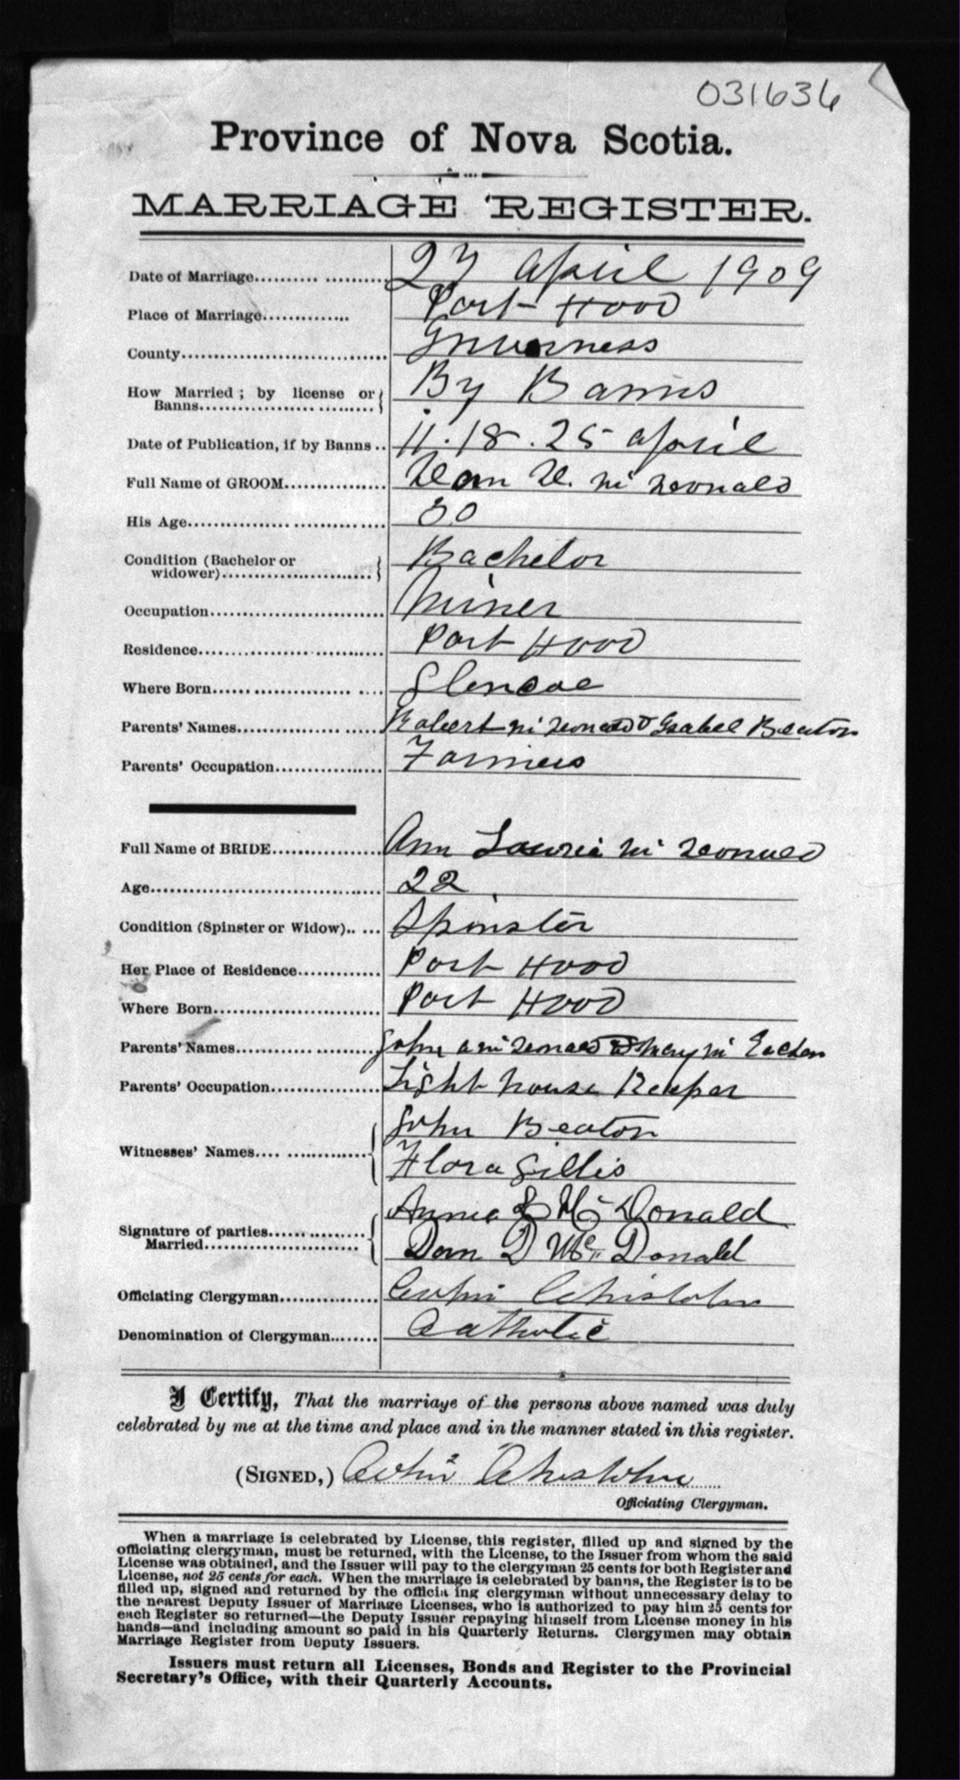 031636
Province of Nova Scotia.
MARRIAGE REGISTER.
Date of Marriage.................... 27 April 1909
Place of Marriage............. Port Hood
County................................ Inverness
How Married ; by license or
Banns............................ By Banns
Date of Publication, if by Banns .. 11. 18. 25 april
Full Name of GROOM............... Dan D. Mc Donald
His Age............................... 30
Condition (Bachelor or
widower).......................... Bachelor
Occupation........................... Miner
Residence............................ Port Hood
Where Born.......................... Glencoe
Parents' Names...................... Robert Mc Donald & Isabel Beaton
Parents' Occupation................ Farmers
Full Name of BRIDE................ Ann Laurie Mc Donald
Age.................................... 22
Condition (Spinster or Widow)..... Spinster
Her Place of Residence............ Port Hood
Where Born.......................... Port Hood
Parents' Names...................... John a Mc Donald & Mary Mc Eachen
Parents' Occupation................ Light house Keeper
Witnesses' Names.................. John Beaton
Flora Gillis
Signature of parties............... Annie L Mc Donald
Married...................... Dan D Mc Donald
Officiating Clergyman.............. Colin Chisholm
Denomination of Clergyman....... Catholic
I Certify, That the marriage of the persons above named was duly
celebrated by me at the time and place and in the manner stated in this register.
(SIGNED,) Colin Chisholm
Officiating Clergyman.
When a marriage is celebrated by License, this register, filled up and signed by the
officiating clergyman, must be returned, with the License, to the Issuer from whom the said
License was obtained, and the Issuer will pay to the clergyman 25 cents for both Register and
License, not 25 cents for each. When the marriage is celebrated by banns, the Register is to be
filled up, signed and returned by the officia ing clergyman without unnecessary delay to
the nearest Deputy Issuer of Marriage Licenses, who is authorized to pay him 25 cents for
each Register so returned—the Deputy Issuer repaying himself from License money in his
hands—and including amount so paid in his Quarterly Returns. Clergymen may obtain
Marriage Register from Deputy Issuers.
Issuers must return all Licenses, Bonds and Register to the Provincial
Secretary's Office, with their Quarterly Accounts.